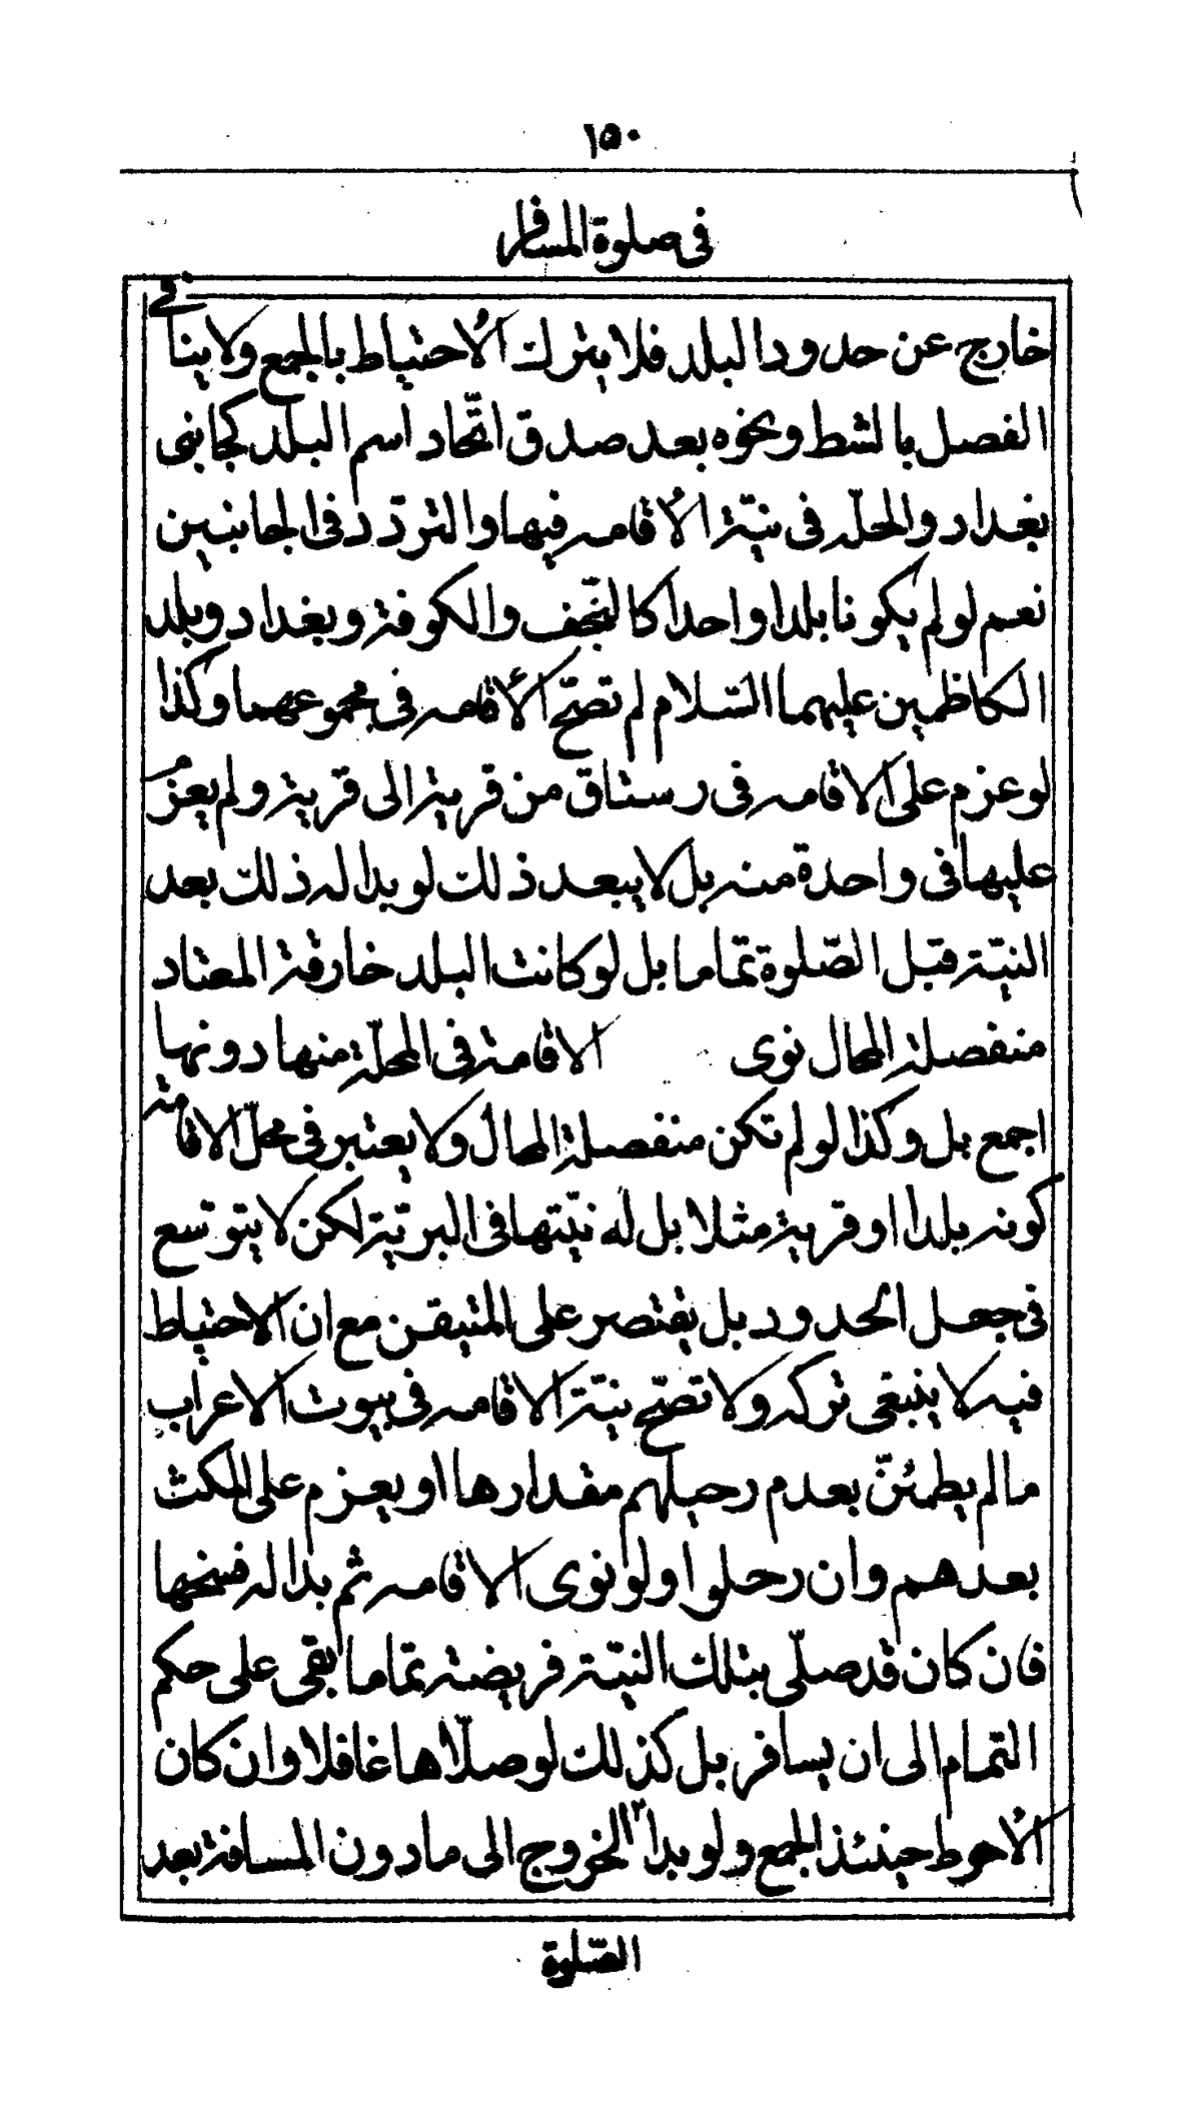 ١٥٠
فى صلوة المسافر
خارج عن حدود البلد فلا يترك الاحتياط بالجمع ولا ينافى
الفصل بالشط ونحوه بعد صدق اتّحاد اسم البلد كجانبى
بغداد والحلّه فى نيّة الاقامه فيها والتردّد فى الجانبين
نعم لو لم يكونا بلدا واحدا كالنّجف والكوفة وبغداد وبلد
الكاظمين عليهما السّلام لم تصحّ الاقامه فى مجموعهما وكذا
لو عزم على الاقامه فى رستاق من قرية الى قرية ولم يعزم
عليها فى واحدة منه بل لا يبعد ذلك لو بدا له ذلك بعد
النيّة قبل الصّلوة تماما بل لو كانت البلد خارقة المعتاد
منفصلة المحال نوى الاقامة فى المحلّة منها دونها
اجمع بل وكذا لو لم تكن منفصلة المحال ولا يعتبر فى محلّ الاقامة
كونه بلدا او قرية مثلا بل له نيّتها فى البريّة لكن لا يتوسع
فى جعل الحدود بل يقتصر على المتيقن مع ان الاحتياط
فيه لا ينبغى تركه ولا تصحّ نيّة الاقامه فى بيوت الاعراب
ما لم يطمئنّ بعدم رحيلهم مقدارها او يعزم على المكث
بعدهم وان رحلوا ولو نوى الاقامه ثم بدا له فسخها
فان كان قد صلّى بتلك النيّة فريضة تماما بقى على حكم
التمام الى ان يسافر بل كذلك لو صلّاها غافلا وان كان
الاحوط حينئذ الجمع ولو بدا الخروج الى ما دون المسافة بعد
الصّلوة